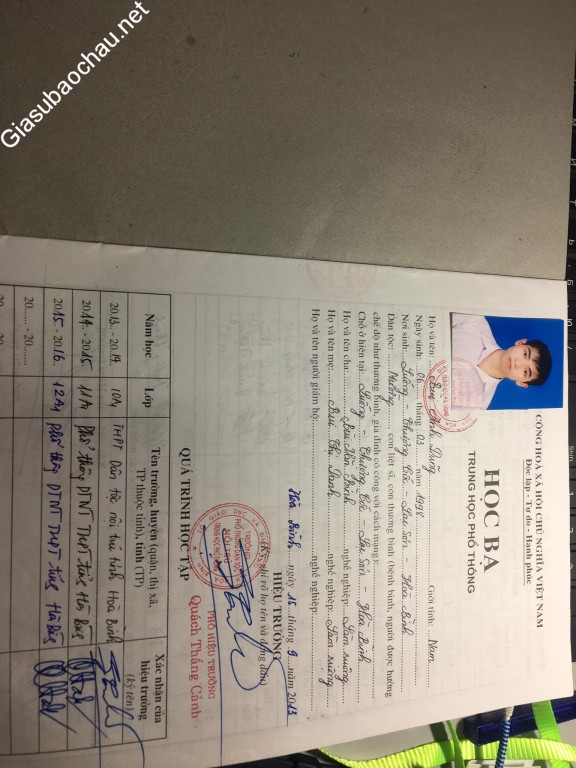 Giasubaochau.net
CỘNG HOÀ XÃ HỘI CHỦ NGHĨA VIỆT NAM
Độc lập - Tự do - Hạnh phúc
HỌC BẠ
TRUNG HỌC PHỔ THÔNG
Họ và tên: Bùi Dũng Giới tính: Nam
Ngày sinh: 06 tháng 02 năm 1998
Nơi sinh: Luông - Thượng Cốc - Lạc Sơn - Hoà Bình
Dân tộc: Mường con liệt sĩ, con thương binh (bệnh binh, người được hưởng
chế độ như thương binh, gia đình có công với cách mạng):
Chỗ ở hiện tại: Luông - Thượng Cốc - Lạc Sơn - Hoà Bình
Họ và tên cha: Bùi Văn nghề nghiệp: Làm ruộng
Họ và tên mẹ: Bùi Thị nghề nghiệp: Làm ruộng
Họ và tên người giám hộ: nghề nghiệp:
Hoà Bình, ngày 15 tháng 9 năm 2013
HIỆU TRƯỞNG
(Ký, ghi rõ họ tên và đóng dấu)
PHÓ HIỆU TRƯỞNG
Quách Thắng Cảnh
QUÁ TRÌNH HỌC TẬP
Năm học Lớp Tên trường, huyện (quận, thị xã, TP thuộc tỉnh), tỉnh (TP) Xác nhận của hiệu trưởng (ký tên)
2013 - 2014 10A THPT Dân tộc nội trú tỉnh Hoà Bình
2014 - 2015 11A1 phổ thông DTNT THPT tỉnh Hoà Bình
2015 - 2016 12A1 phổ thông DTNT THPT tỉnh Hoà Bình
20...... - 20......